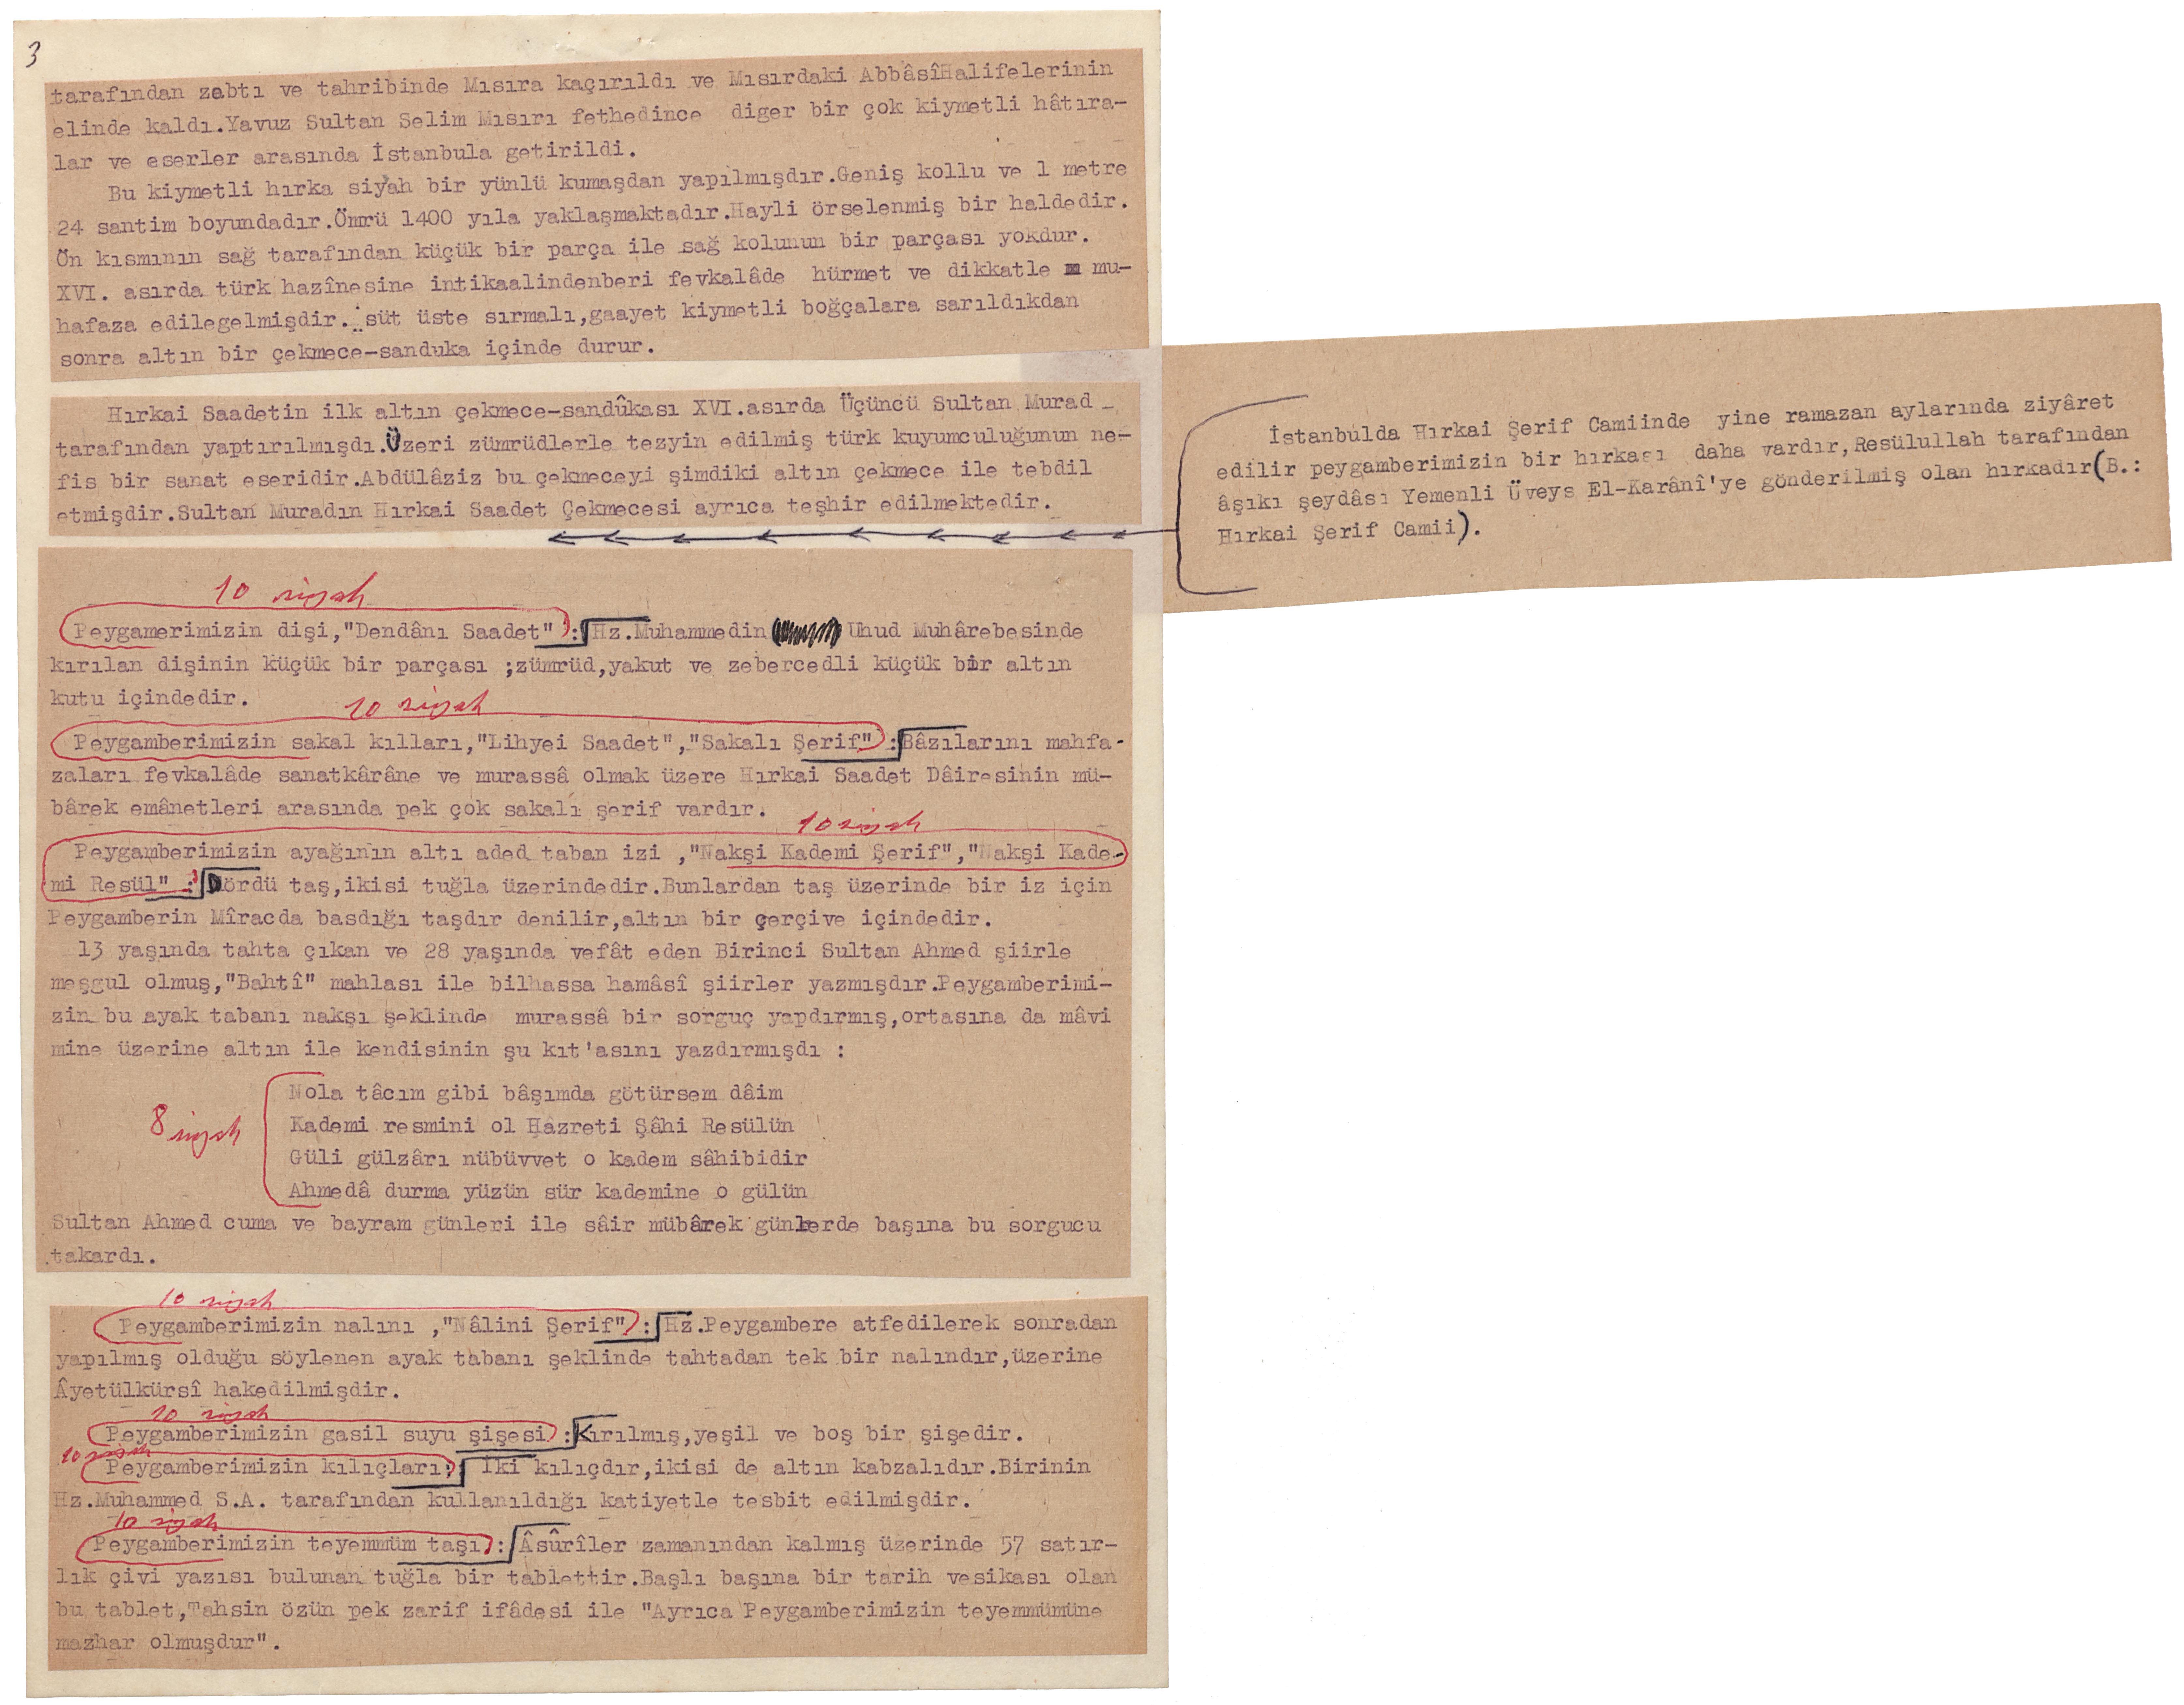 3
tarafından zabtı ve tahribinde Mısıra kaçırıldı ve Mısırdaki AbbâsîHalifelerinin
elinde kaldı.Yavuz Sultan Selim Mısırı fethedince diger bir çok kiymetli hâtıra-
lar ve eserler arasında İstanbula getirildi.
Bu kiymetli hırka siyah bir yünlü kumaşdan yapılmışdır.Geniş kollu ve 1 metre
24 santim boyundadır.Ömrü 1400 yıla yaklaşmaktadır.Hayli örselenmiş bir haldedir.
Ön kısmının sağ tarafından küçük bir parça ile sağ kolunun bir parçası yokdur.
XVI. asırda türk hazînesine intikaalindenberi fevkalâde hürmet ve dikkatle mu-
hafaza edilegelmişdir. süt üste sırmalı,gaayet kiymetli boğçalara sarıldıkdan
sonra altın bir çekmece-sanduka içinde durur.
Hırkai Saadetin ilk altın çekmece-sandûkası XVI.asırda Üçüncü Sultan Murad
tarafından yaptırılmışdı.Üzeri zümrüdlerle tezyin edilmiş türk kuyumculuğunun ne-
fis bir sanat eseridir.Abdülâziz bu çekmeceyi şimdiki altın çekmece ile tebdil
etmişdir.Sultan Muradın Hırkai Saadet Çekmecesi ayrıca teşhir edilmektedir.
İstanbulda Hırkai Şerif Camiinde yine ramazan aylarında ziyâret
edilir peygamberimizin bir hırkası daha vardır,Resülullah tarafından
âşıkı şeydâsı Yemenli Üveys El-Karânî'ye gönderilmiş olan hırkadır(B.:
Hırkai Şerif Camii).
10 siyah
Peygamerimizin dişi,"Dendânı Saadet":Hz.Muhammedin Uhud Muhârebesinde
kırılan dişinin küçük bir parçası ;zümrüd,yakut ve zebercedli küçük bir altın
kutu içindedir.
10 siyah
Peygamberimizin sakal kılları,"Lihyei Saadet","Sakalı Şerif":Bâzılarını mahfa-
zaları fevkalâde sanatkârâne ve murassâ olmak üzere Hırkai Saadet Dâiresinin mü-
bârek emânetleri arasında pek çok sakalı şerif vardır.
10 siyah
Peygamberimizin ayağının altı aded taban izi ,"Nakşi Kademi Şerif","Nakşi Kade-
mi Resül" :Dördü taş,ikisi tuğla üzerindedir.Bunlardan taş üzerinde bir iz için
Peygamberin Mîracda basdığı taşdır denilir,altın bir çerçive içindedir.
13 yaşında tahta çıkan ve 28 yaşında vefât eden Birinci Sultan Ahmed şiirle
meşgul olmuş,"Bahtî" mahlası ile bilhassa hamâsî şiirler yazmışdır.Peygamberimi-
zin bu ayak tabanı nakşı şeklinde murassâ bir sorguç yapdırmış,ortasına da mâvi
mine üzerine altın ile kendisinin şu kıt'asını yazdırmışdı :
8 siyah
Nola tâcım gibi bâşımda götürsem dâim
Kademi resmini ol Hazreti Şâhi Resülün
Güli gülzârı nübüvvet o kadem sâhibidir
Ahmedâ durma yüzün sür kademine o gülün
Sultan Ahmed cuma ve bayram günleri ile sâir mübârek günlerde başına bu sorgucu
takardı.
10 siyah
Peygamberimizin nalını ,"Nâlini Şerif":Hz.Peygambere atfedilerek sonradan
yapılmış olduğu söylenen ayak tabanı şeklinde tahtadan tek bir nalındır,üzerine
Âyetülkürsî hakedilmişdir.
10 siyah
Peygamberimizin gasil suyu şişesi:Kırılmış,yeşil ve boş bir şişedir.
10 siyah
Peygamberimizin kılıçları: İki kılıçdır,ikisi de altın kabzalıdır.Birinin
Hz.Muhammed S.A. tarafından kullanıldığı katiyetle tesbit edilmişdir.
10 siyah
Peygamberimizin teyemmüm taşı:Âsûrîler zamanından kalmış üzerinde 57 satır-
lık çivi yazısı bulunan tuğla bir tablettir.Başlı başına bir tarih vesikası olan
bu tablet,Tahsin özün pek zarif ifâdesi ile "Ayrıca Peygamberimizin teyemmümüne
mazhar olmuşdur".